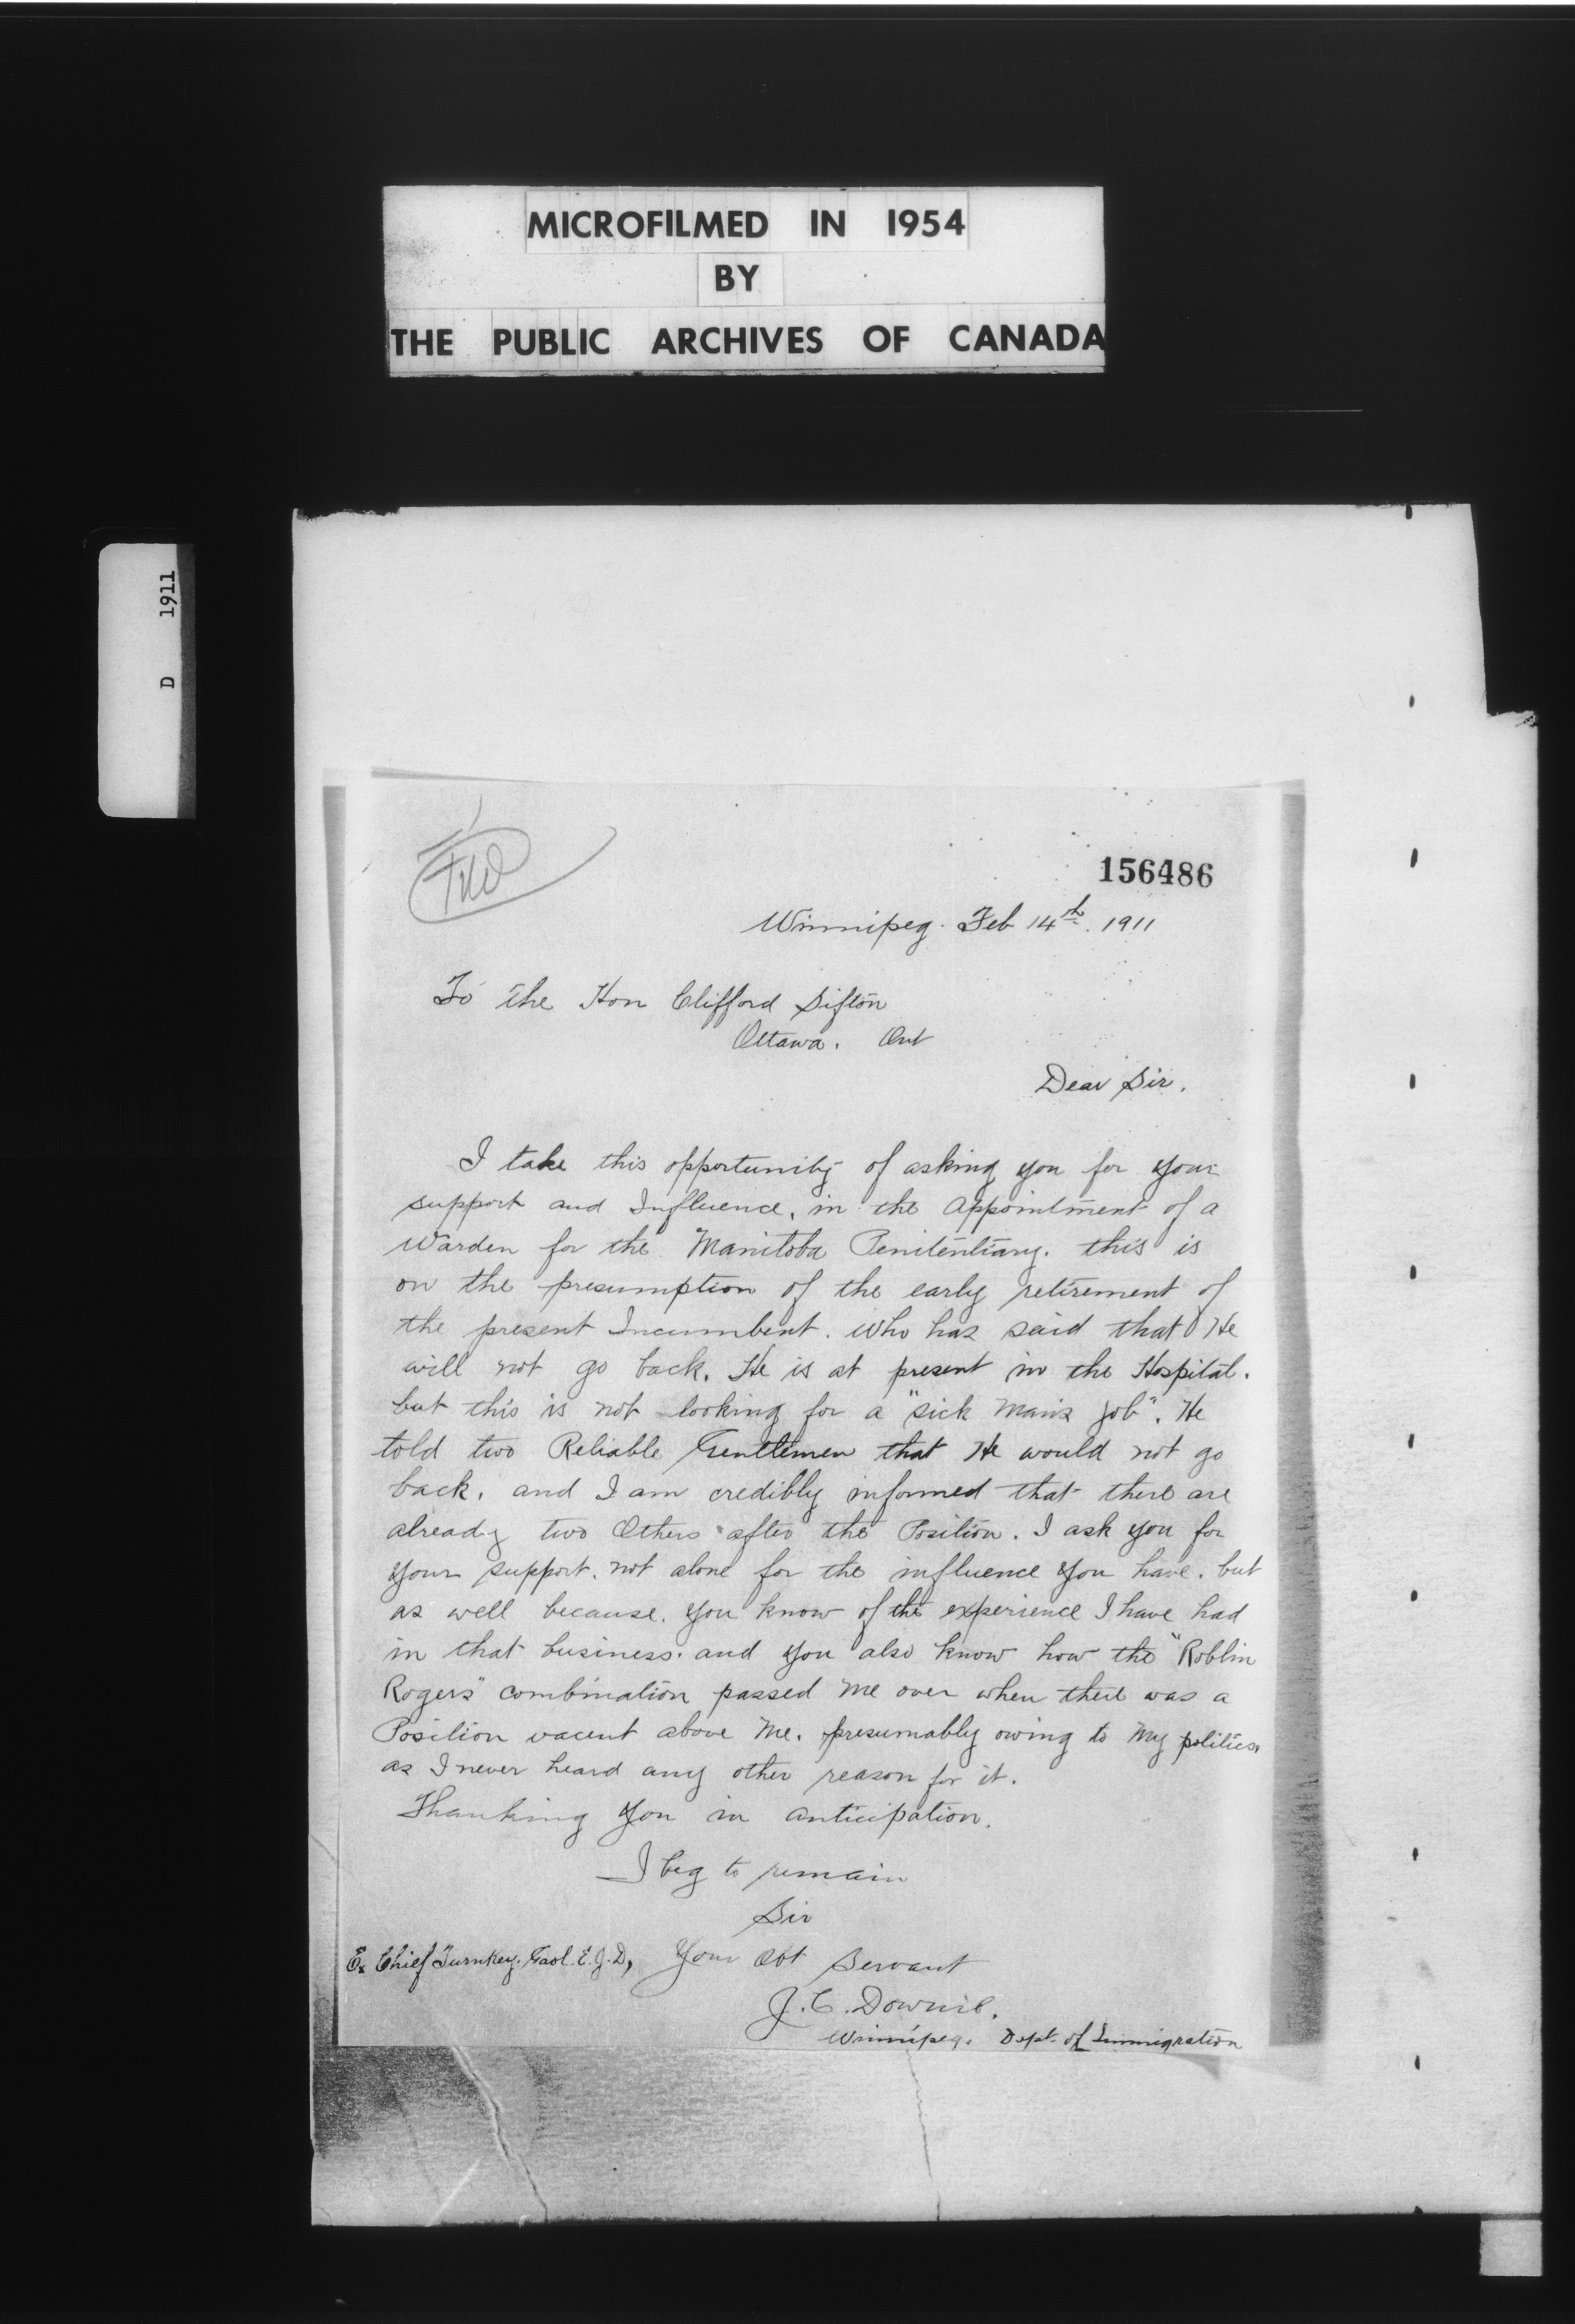 MICROFILMED IN 1954
BY
THE PUBLIC ARCHIVES OF CANADA
D 1911
156486
Winnipeg. Feb 14th. 1911
To the Hon Clifford Sifton
Ottawa. Ont
Dear Sir.
I take this opportunity of asking you for your
support and Influence, in the Appointment of a
Warden for the Manitoba Penitentiary. this is
on the presumption of the early retirement of
the present Incumbent. Who has said that He
will not go back. He is at present in the Hospital.
but this is not looking for a "sick man's job". He
told two Reliable Gentlemen that He would not go
back. and I am credibly informed that there are
already two Others after the Position. I ask you for
your support. not alone for the influence you have. but
as well because. you know of the experience I have had
in that business. and you also know how the "Roblin
Rogers" combination passed me over when there was a
Position vacent above me. presumably owing to my politics,
as I never heard any other reason for it.
Thanking you in anticipation.
I beg to remain
Sir
Ex Chief Turnkey. Gaol. E.J.D, Your Obt Servant
J. C. Downie.
Winnipeg. Dept. of Immigration